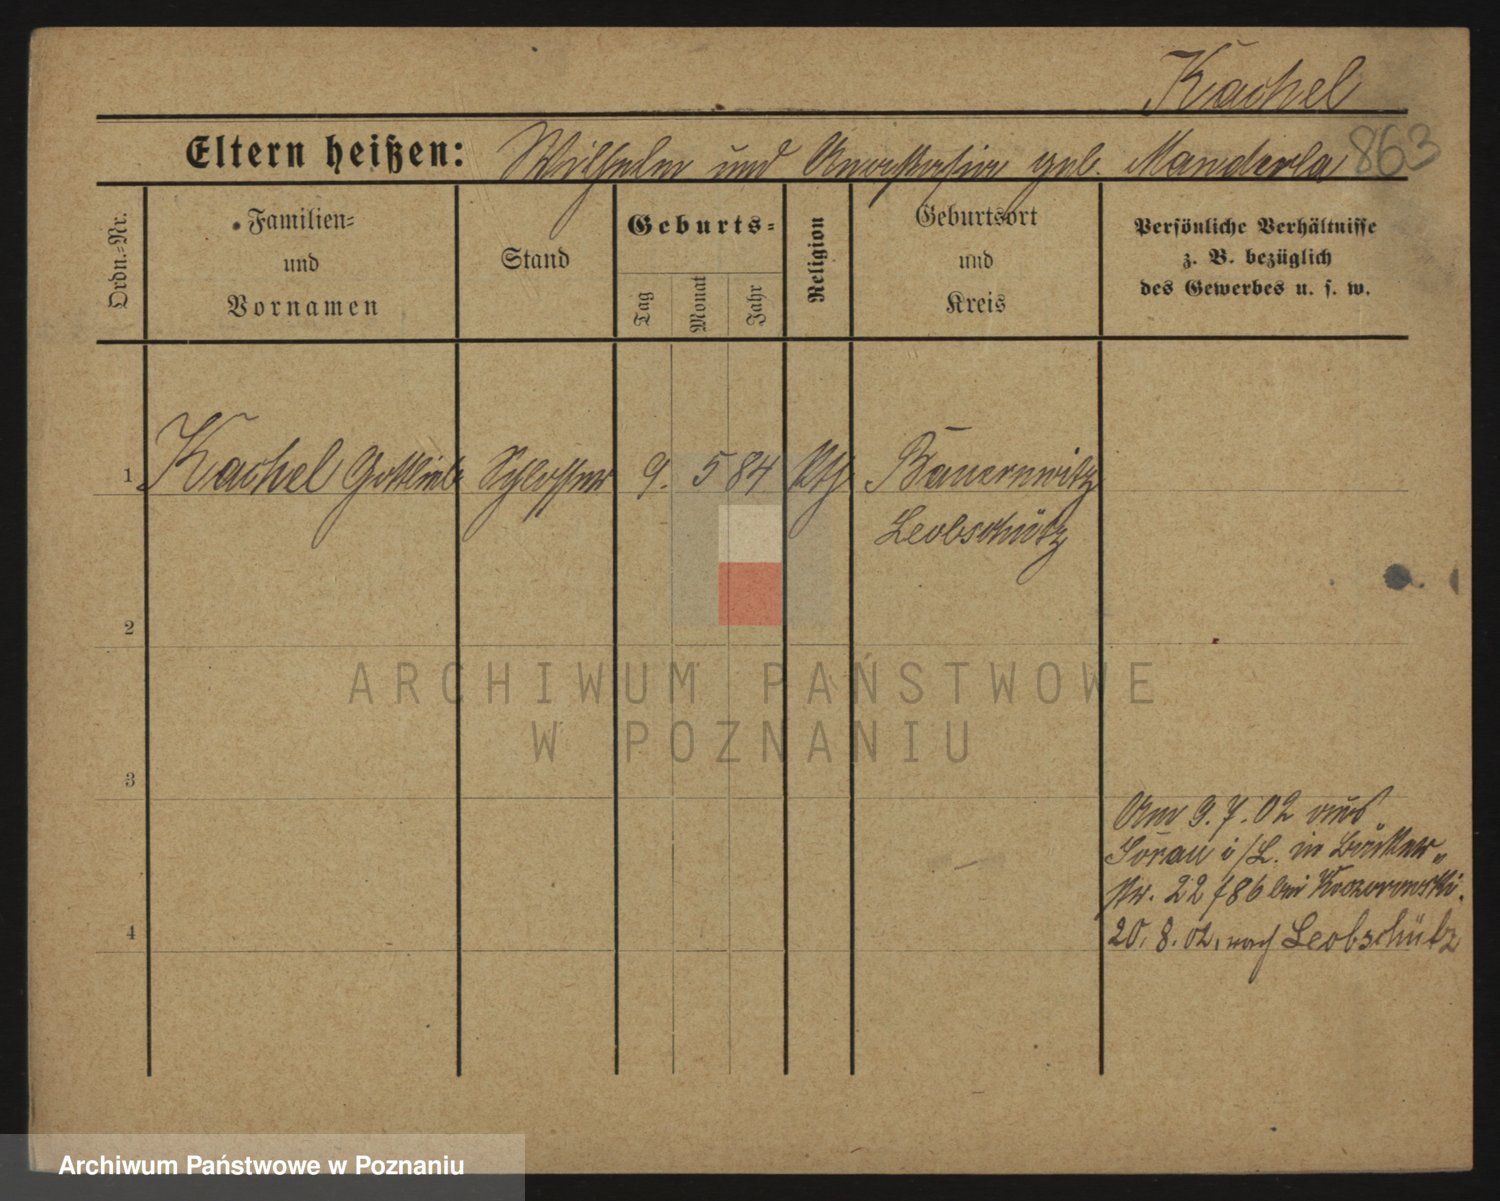 Kachel
Eltern heißen: Wilhelm und Anastasia geb. Manderla 863
Ordn.-Nr.
Familien-
und
Vornamen
Stand
Geburts-
Tag
Monat
Jahr
Religion
Geburtsort
und
Kreis
Persönliche Verhältnisse
z. B. bezüglich
des Gewerbes u. s. w.
1 Kachel Gottlieb Schlosser 9. 5 84 kth Bauerwitz
Leobschütz
2
3
Am 9.7.02 aus
Sorau i/L. in Bäcker-
str. 22/86 bei
4
20. 8. 02, nach Leobschütz
ARCHIWUM PAŃSTWOWE
W POZNANIU
Archiwum Państwowe w Poznaniu